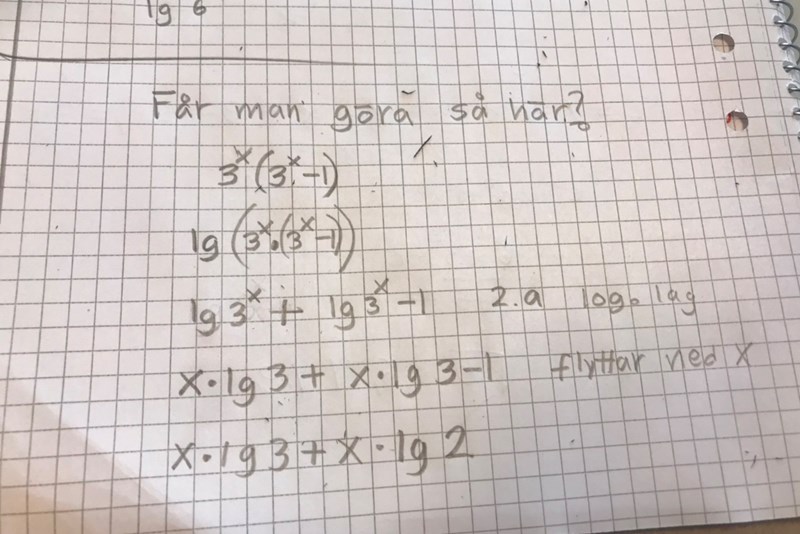 lg 6
Får man göra så här?
3^x(3^x-1)
lg(3^x·(3^x-1))
lg 3^x + lg 3^x-1 2.a log. lag
x·lg 3 + x·lg 3-1 flyttar ned x
x·lg 3 + x·lg 2